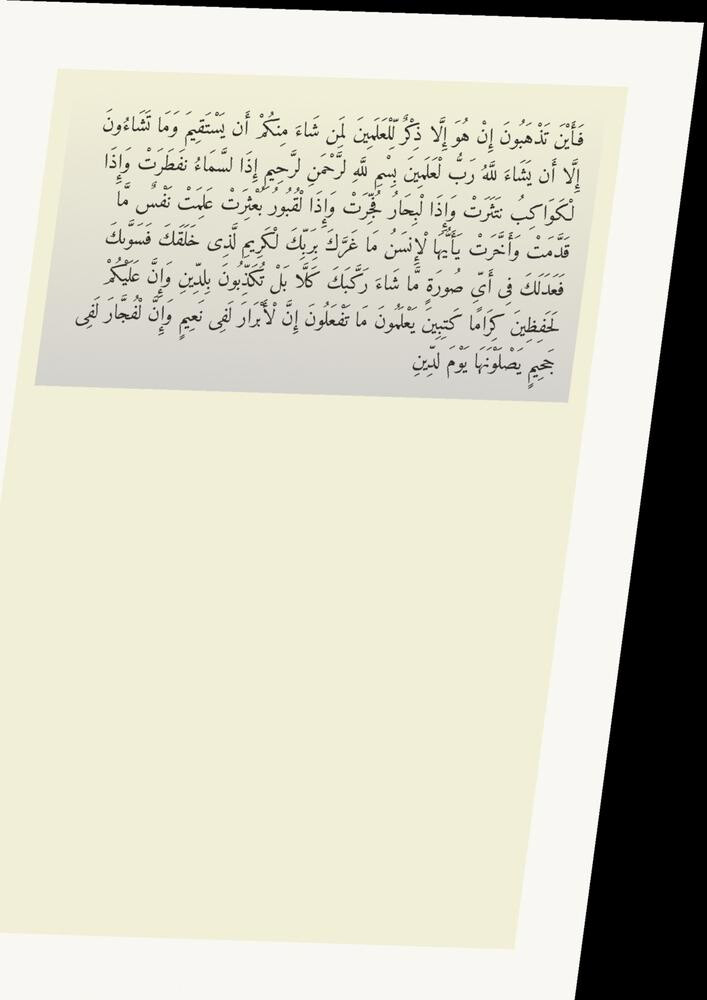 فَأَيْنَ تَذْهَبُونَ إِنْ هُوَ إِلَّا ذِكْرٌ لِّلْعَلَمِينَ لِمَن شَاءَ مِنكُمْ أَن يَسْتَقِيمَ وَمَا تَشَاءُونَ
إِلَّا أَن يَشَاءَ للَّهُ رَبُّ لْعَلَمِينَ بِسْمِ للَّهِ لرَّحْمَنِ لرَّحِيمِ إِذَا لسَّمَاءُ نفَطَرَتْ وَإِذَا
لْكَوَاكِبُ نتَثَرَتْ وَإِذَا لْبِحَارُ فُجِّرَتْ وَإِذَا لْقُبُورُ بُعْثِرَتْ عَلِمَتْ نَفْسٌ مَّا
قَدَّمَتْ وَأَخَّرَتْ يَأَيُّهَا لْإِنسَنُ مَا غَرَّكَ بِرَبِّكَ لْكَرِيمِ لَّذِى خَلَقَكَ فَسَوَّىكَ
فَعَدَلَكَ فِى أَىِّ صُورَةٍ مَّا شَاءَ رَكَّبَكَ كَلَّا بَلْ تُكَذِّبُونَ بِلدِّينِ وَإِنَّ عَلَيْكُمْ
لَحَفِظِينَ كِرَامًا كَتِبِينَ يَعْلَمُونَ مَا تَفْعَلُونَ إِنَّ لْأَبْرَارَ لَفِى نَعِيمٍ وَإِنَّ لْفُجَّارَ لَفِى
جَحِيمٍ يَصْلَوْنَهَا يَوْمَ لدِّينِ